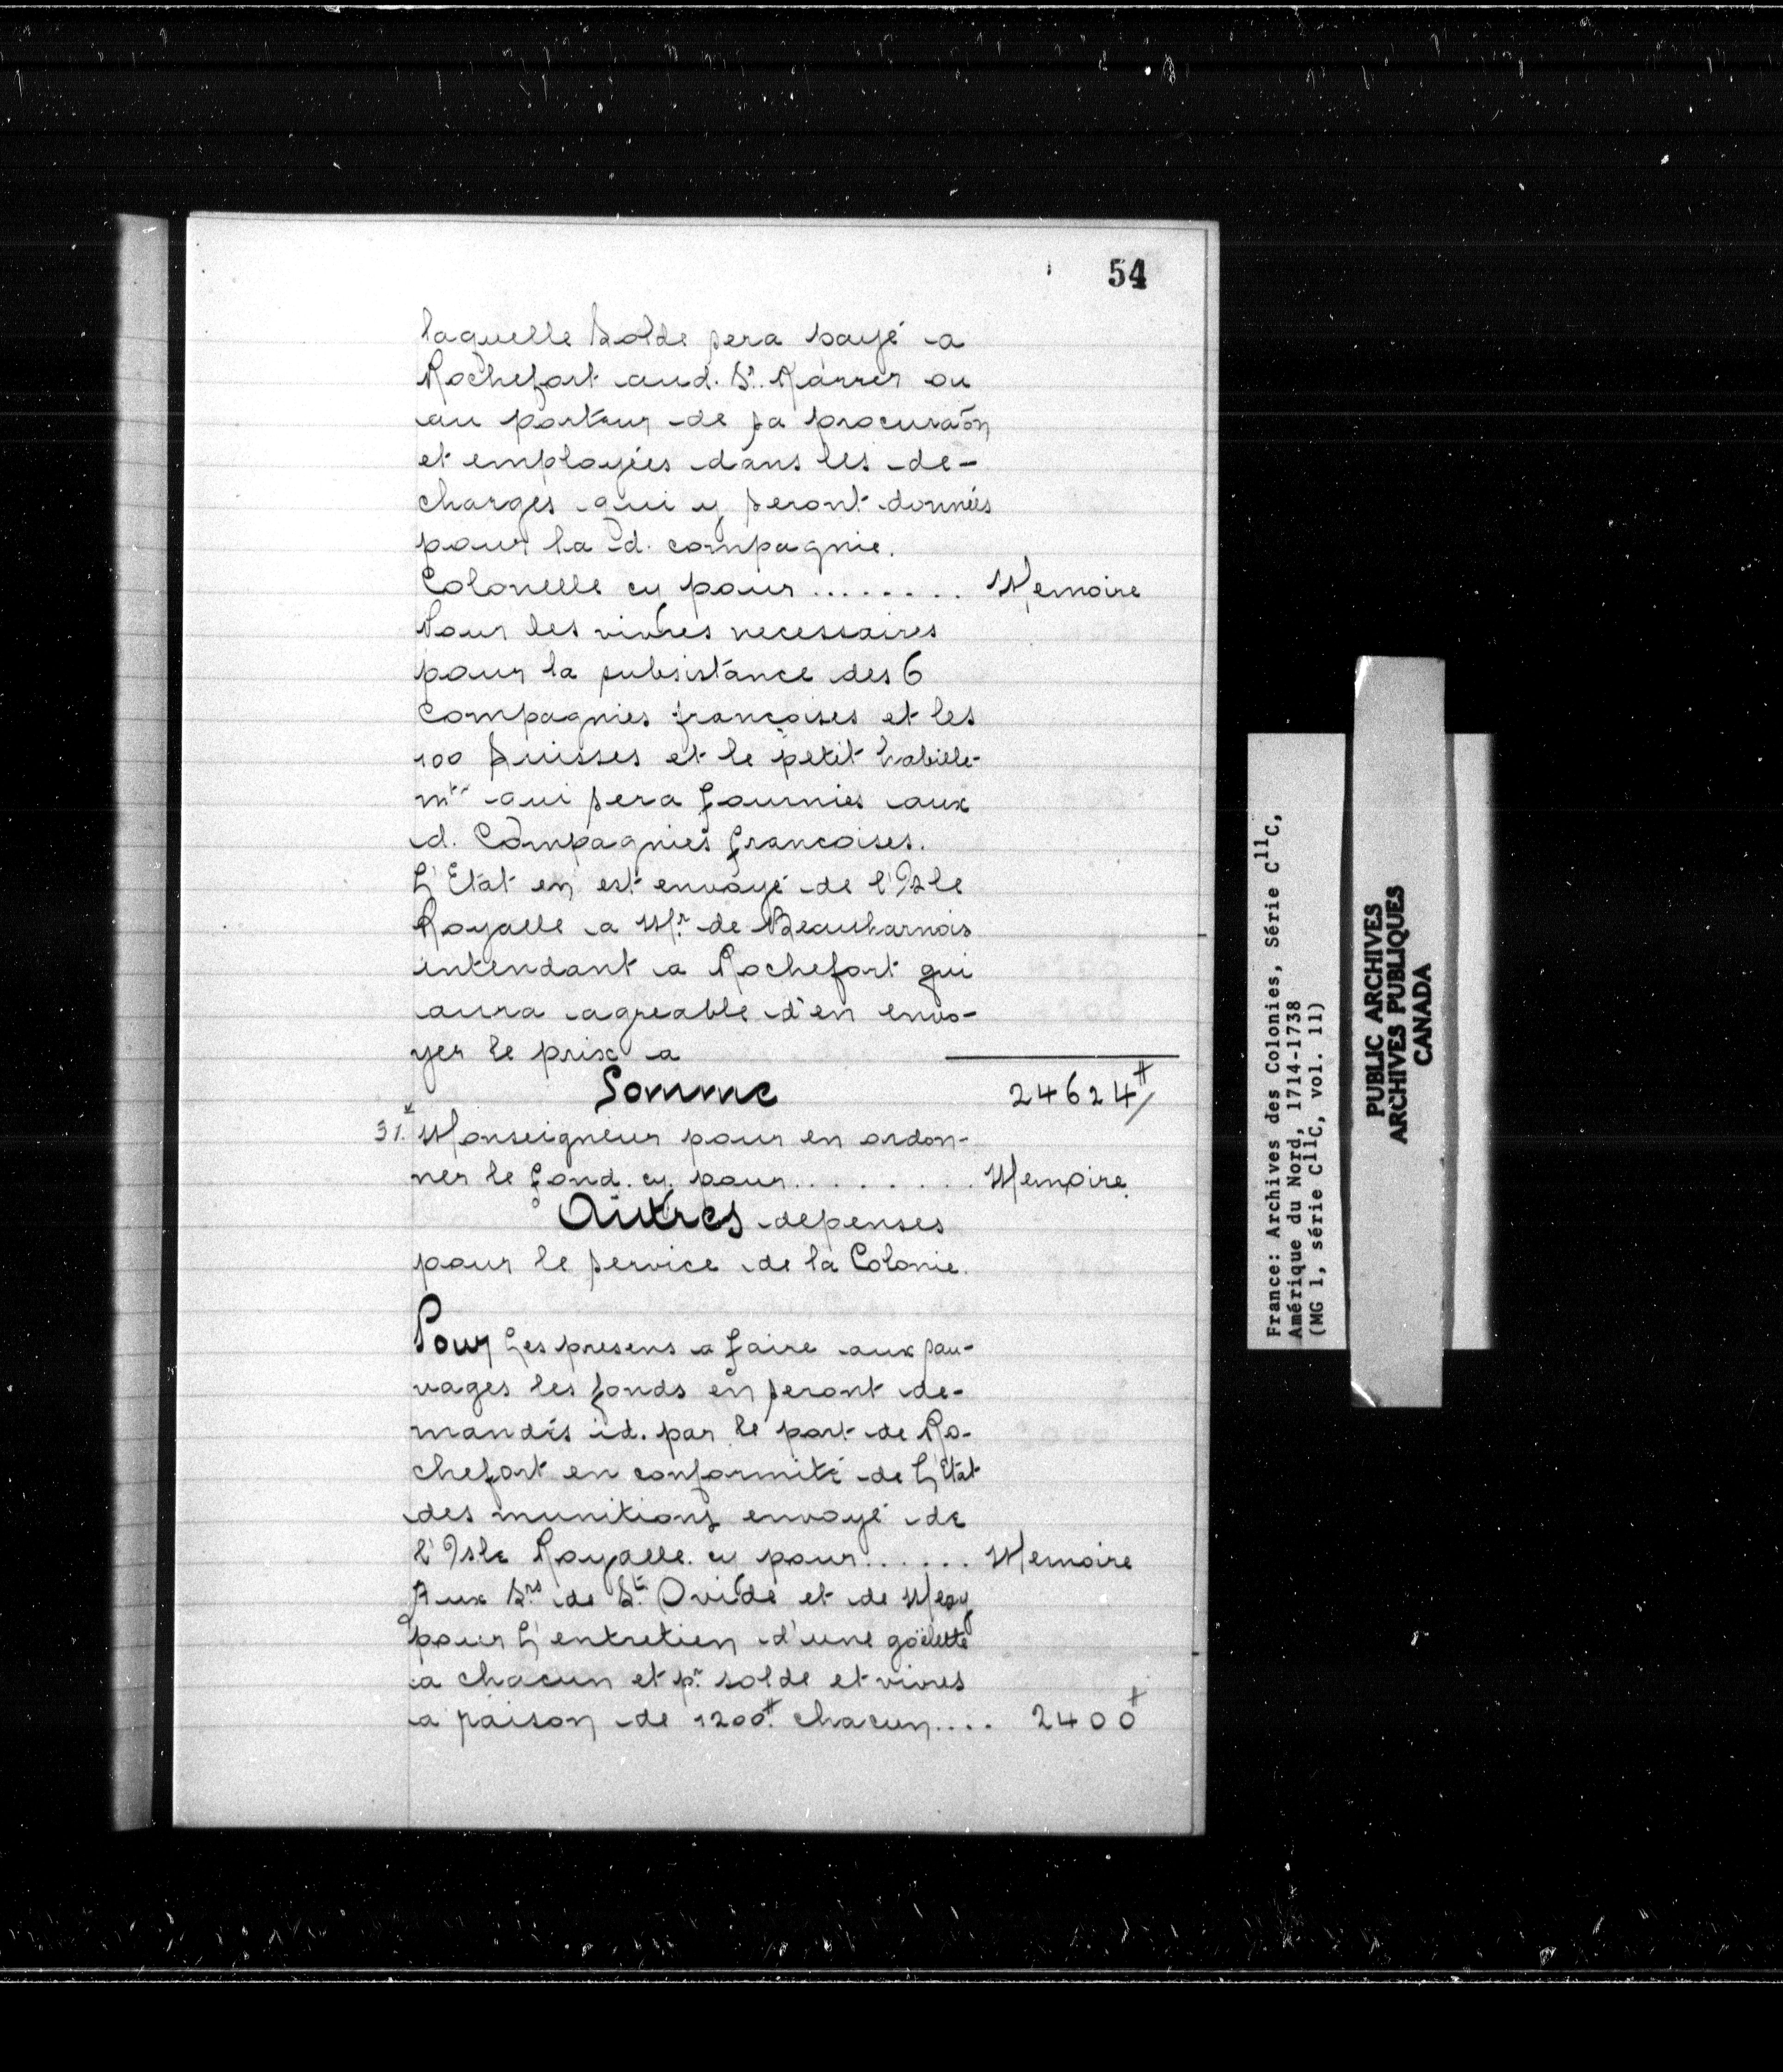 54
laquelle Solde sera payé a
Rochefort aud. Sr. Karrer ou
au porteur de sa procuraōn
et employées dans les de-
charges qui y seront données
pour la d. compagnie.
Colonelle cy pour ........ Memoire
Pour les vivres necessaires
pour la subsistance des 6
Compagnies françoises et les
100 Suisses et le petit habille-
mt qui sera fournies aux
d. Compagnies francoises.
L'Etat en est envoyé de l'Isle
Royalle a Mr. de Beauharnois
intendant a Rochefort qui
aura agreable d'en envo-
yer le prix a
Somme 24624#
31. Monseigneur pour en ordon-
ner le fond. cy. pour ......... Memoire
Autres depenses
pour le service de la Colonie.
Pour Les presens a faire aux sau-
vages les fonds en seront de-
mandés id. par le port de Ro-
chefort en conformité de L'Etat
des munitions envoyé de
l'Isle Royalle. cy pour ...... Memoire
Aux Srs de St. Ovide et de Mezy
pour L'entretien d'une goëlette
a chacun et pr. solde et vivres
a raison de 1200# chacun .... 2400#
France: Archives des Colonies, Série C11C,
Amérique du Nord, 1714-1738
(MG 1, série C11C, vol. 11)
PUBLIC ARCHIVES
ARCHIVES PUBLIQUES
CANADA